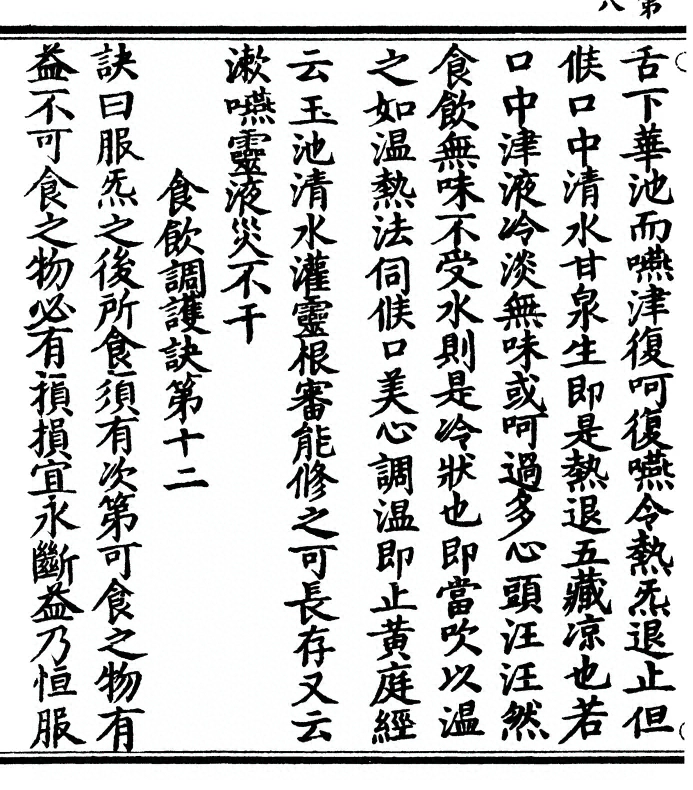 第
八
舌下華池而嚥津復呵復嚥令熱炁退止但
候口中清水甘泉生即是熱退五藏凉也若
口中津液冷淡無味或呵過多心頭汪汪然
食飲無味不受水則是冷狀也即當吹以温
之如温熱法伺候口美心調温即止黃庭經
云玉池清水灌靈根審能修之可長存又云
漱嚥靈液災不干
食飲調護訣第十二
訣曰服炁之後所食須有次第可食之物有
益不可食之物必有損損宜永斷益乃恒服